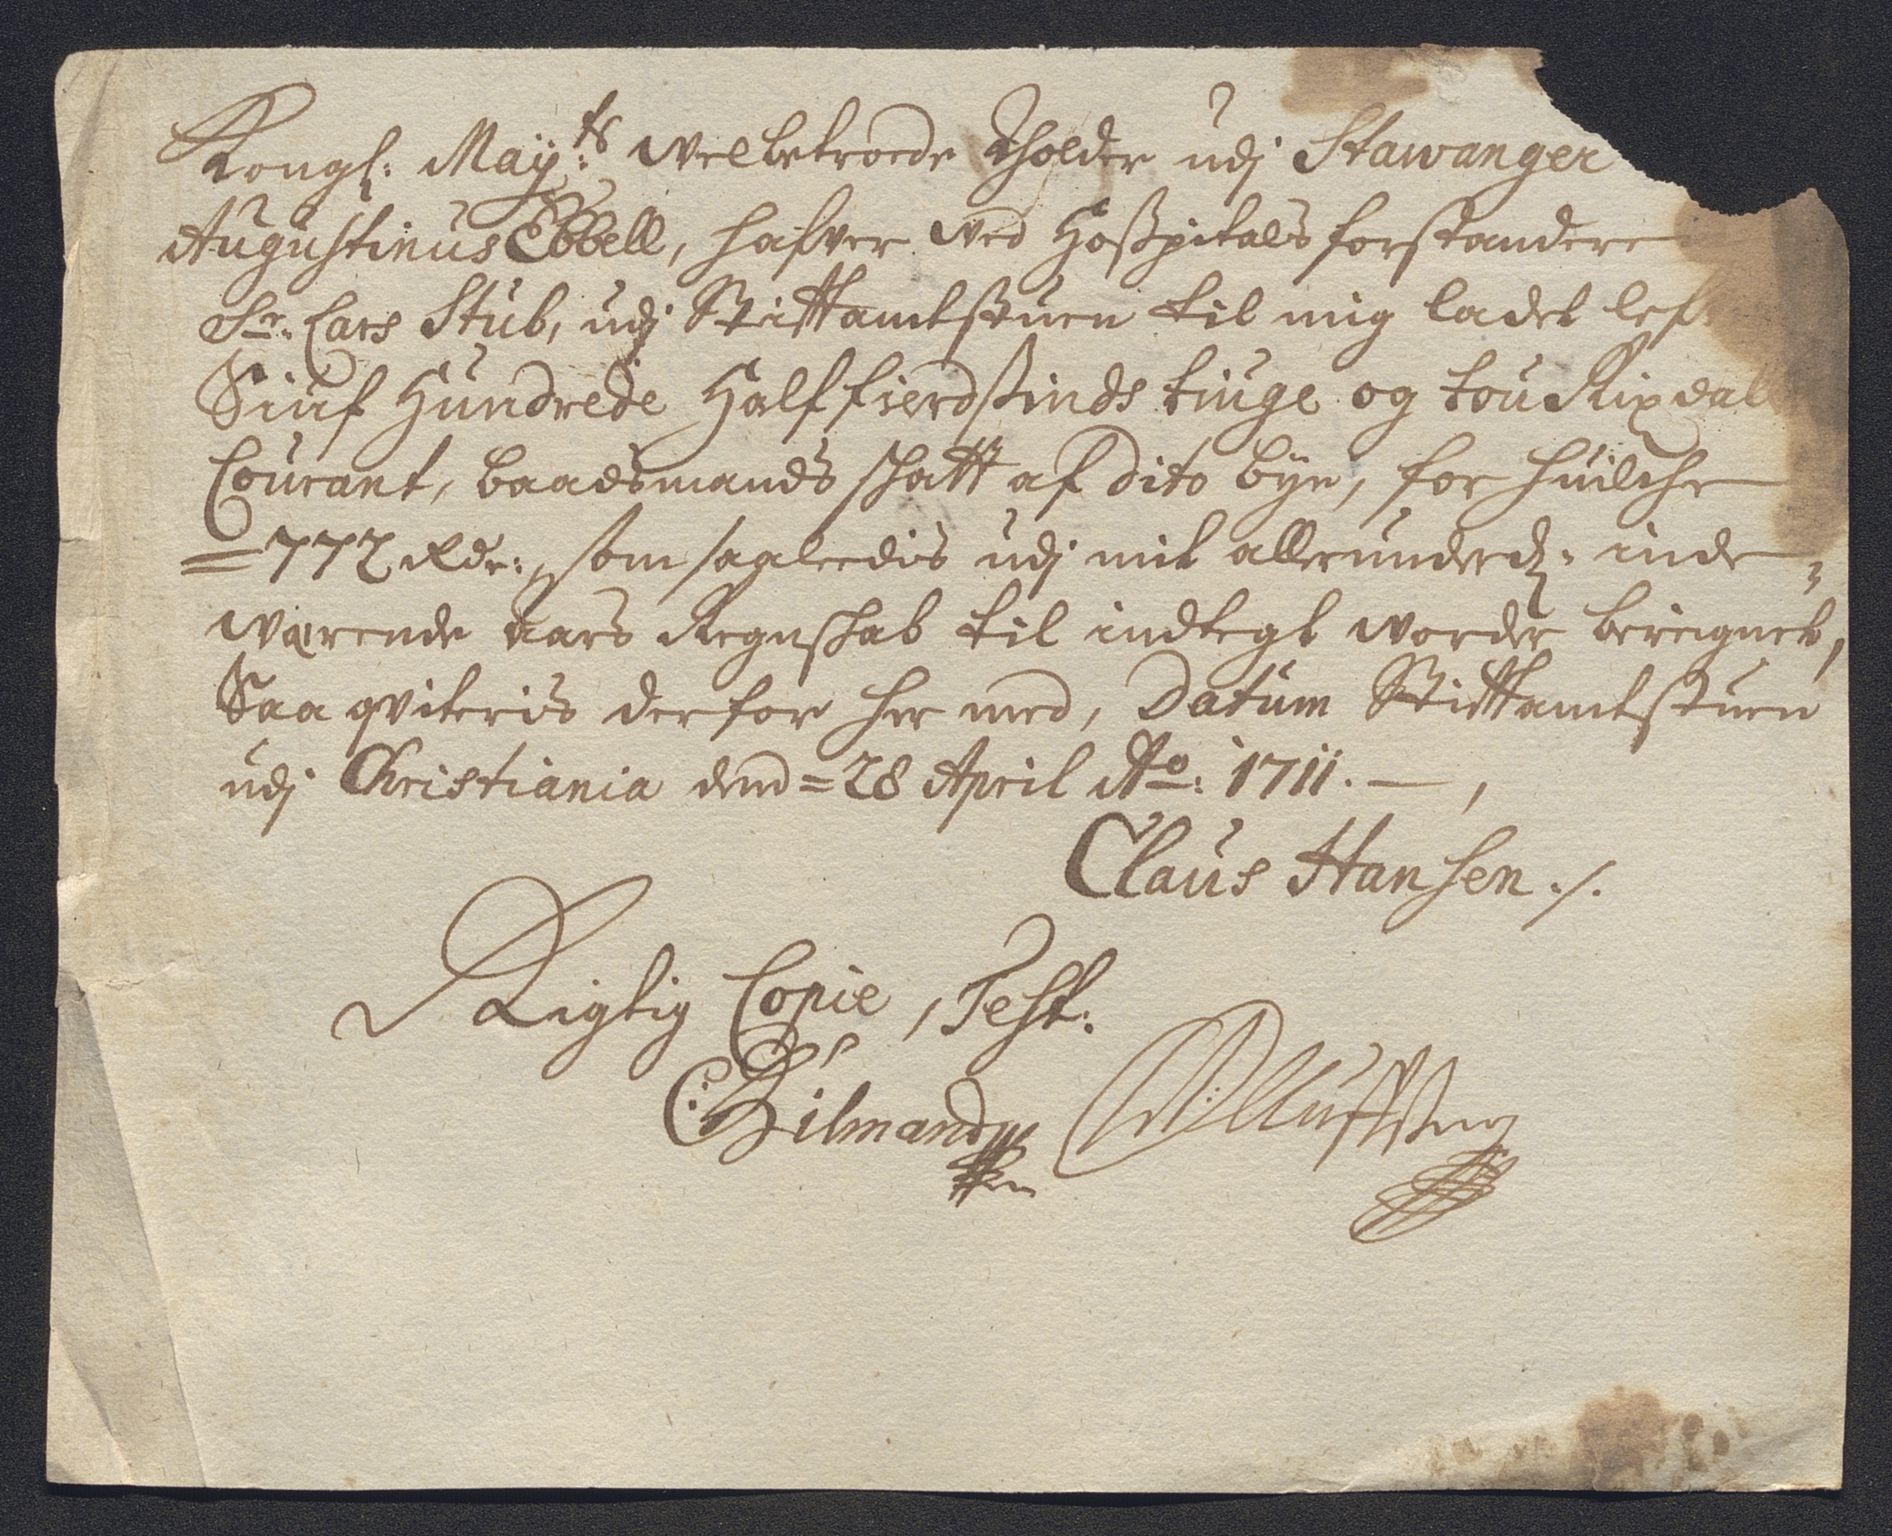 Kongl: Maÿ:ts welbetroede Tholder udj Stawanger
Augustinus Ebbell, hafver ved Hoßpitals forstandere
Sr. Lars Stub, udj Stifftamtstuen til mig ladet lef
Siuf Hundrede Half fierdßinds tiuge og tou Rixdall
Courant, baadsmands skatt af dito bÿe, for huilche
= 772 Rdr:, som saaleedis udj mit allerunderd: inde-
wærende aars Regnskab til indtegt worder bereignet,
Saa qviteris derfor her med, Datum Stifftamtstuen
udj Christiania dend = 28 April Ao: 1711. —,
Claus Hansen ./.
Rigtig Copie, Test: